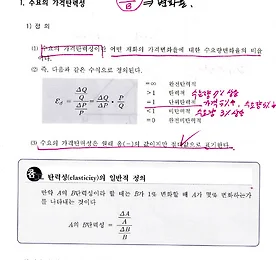 1. 수요의 가격탄력성
1) 정 의
(1) 수요의 가격탄력성이란 어떤 재화의 가격변화율에 대한 수요량변화율의 비율
이다.
(2) 즉, 다음과 같은 수식으로 정의된다.
=∞ 완전탄력적
>1 탄력적
=1 단위탄력적
<1 비탄력적
=0 완전비탄력적
(3) 수요의 가격탄력성은 원래 음(−)의 값이지만 절대값으로 표기한다.
1. 탄력성(elasticity)의 일반적 정의
만약 A의 B탄력성이라 할 때는 B가 1% 변화할 때 A가 몇% 변화하는가
를 나타내는 것이다
A의 B탄력성 = (ΔA/A)/(ΔB/B)